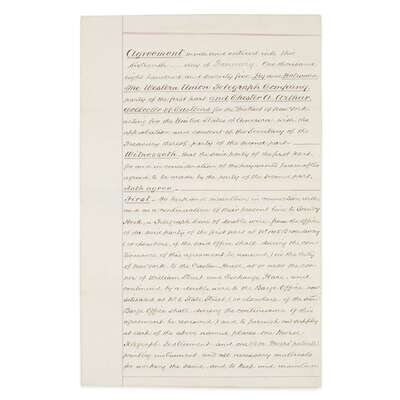 Agreement made and entered into this
sixteenth day of January, One thousand
eight hundred and seventy five, by and between
The Western Union Telegraph Company,
party of the first part and Chester A. Arthur,
Collector of Customs for the District of New York
acting for the United States of America with the
approbation and consent of the Secretary of the
Treasury thereof, party of the second part.
Witnesseth, that the said party of the first part,
for and in consideration of the payments hereinafter
agreed to be made by the party of the second part,
doth agree.
First. To keep and maintain in connection with
and as a continuation of their present line to Sandy
Hook, a Telegraph line of double wire from the office
of the said party of the first part at No. 145 Broadway
(or elsewhere, if the said office shall during the con-
tinuance of this agreement be removed,) in the City
of New York, to the Custom House, at or near the cor-
ner of William Street and Exchange Place, and
continued by a double wire to the Barge Office now
situated at No. 6 State Street, (or elsewhere if the
Barge Office shall, during the continuance of this
agreement be removed,) and to furnish and supply
at each of the above named places one Morse
Telegraph Instrument and one
printing instrument, and all necessary materials
for working the same, and to keep and maintain